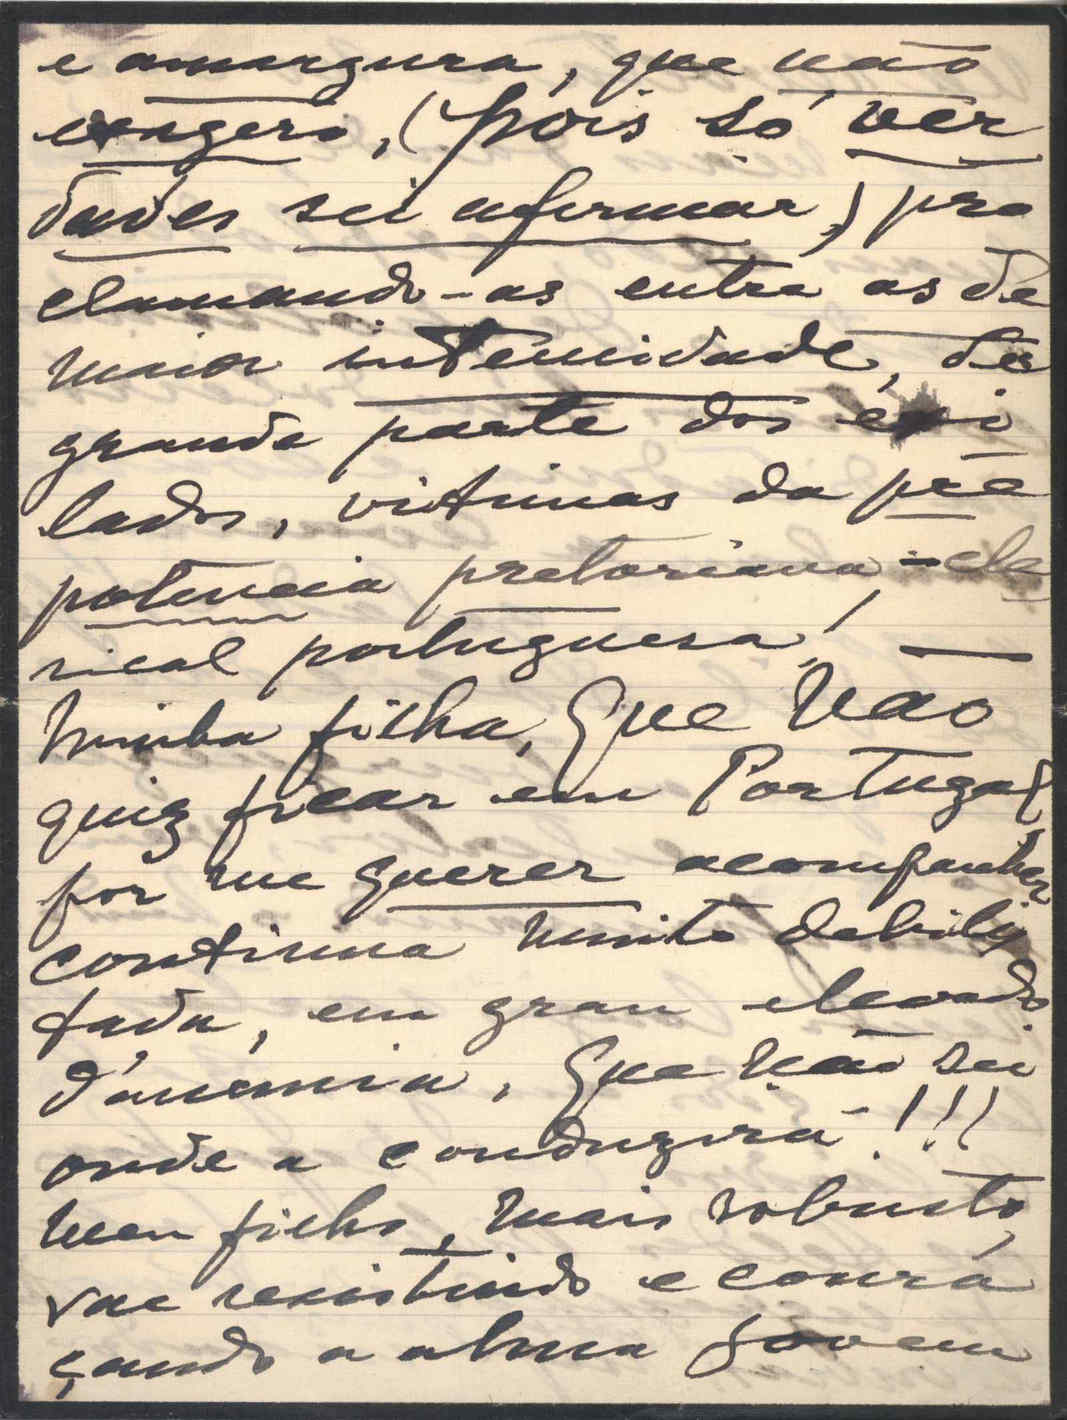 e amargura, que não
exagero, (pois só ver
dades sei afirmar,) pro
clamando-as entre as de
maior intensidade, de
grande parte dos exi
lados, victimas da pre
potencia pretoriana-cle
rical portuguesa! —
Minha filha, que não
quiz ficar em Portugal
por me querer acompanhar
continua muito debili
tada, em grau elevado
d'anemia, que não sei
onde a conduzirá!!!
Meu filho, mais robusto,
vae resistindo e coura
çando a alma jovem